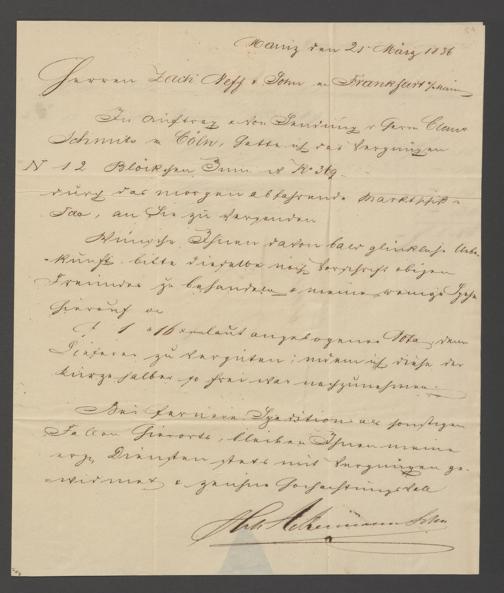 Mainz den 21 März 1836
Herren Zach Neff & Sohn in Frankfurt a/Main
Im Auftrag & von Sendung d Herrn Claus
Schmitz in Cöln, hatte ich das Vergnügen
N 1 2 Blöckchen Zinn
durch das morgen abfahrende Marktschiff
an Sie zu versenden
Wünsche Ihnen davon bald glückliche Ankunft
bitte dieselbe nach Vorschrift obigen
Freundes zu behandeln & meine wenige Spesen
hierauf
laut angebogener Nota, dem
Lieferer zu vergüten; indem ich diese der
Kürze halber so frei war nachzunehmen
Bei ferneren Speditions als sonstigen
Fällen hierorts, bleiben Ihnen meine
Diensten stets mit Vergnügen ge-
widmet & zeichne Hochachtungsvoll
Ackermann Sohn